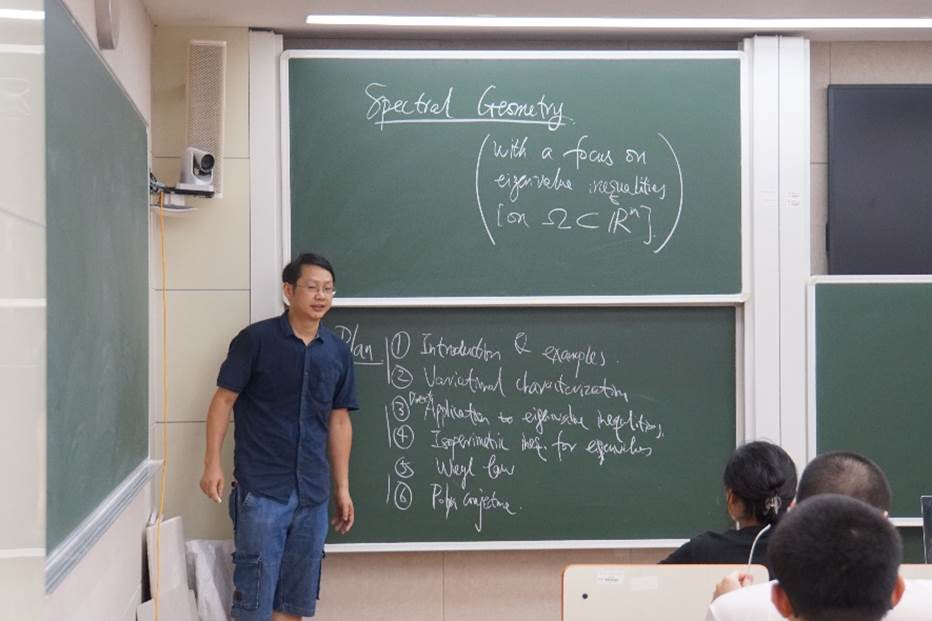 Spectral Geometry
(with a focus on
eigenvalue inequalities
[on Ω ⊂ ℝⁿ].)
Plan
① Introduction & examples.
② Variational characterization
③ Direct Application to eigenvalue inequalities.
④ Isoperimetric ineq. for eigenvalues
⑤ Weyl law
⑥ Polya conjecture.